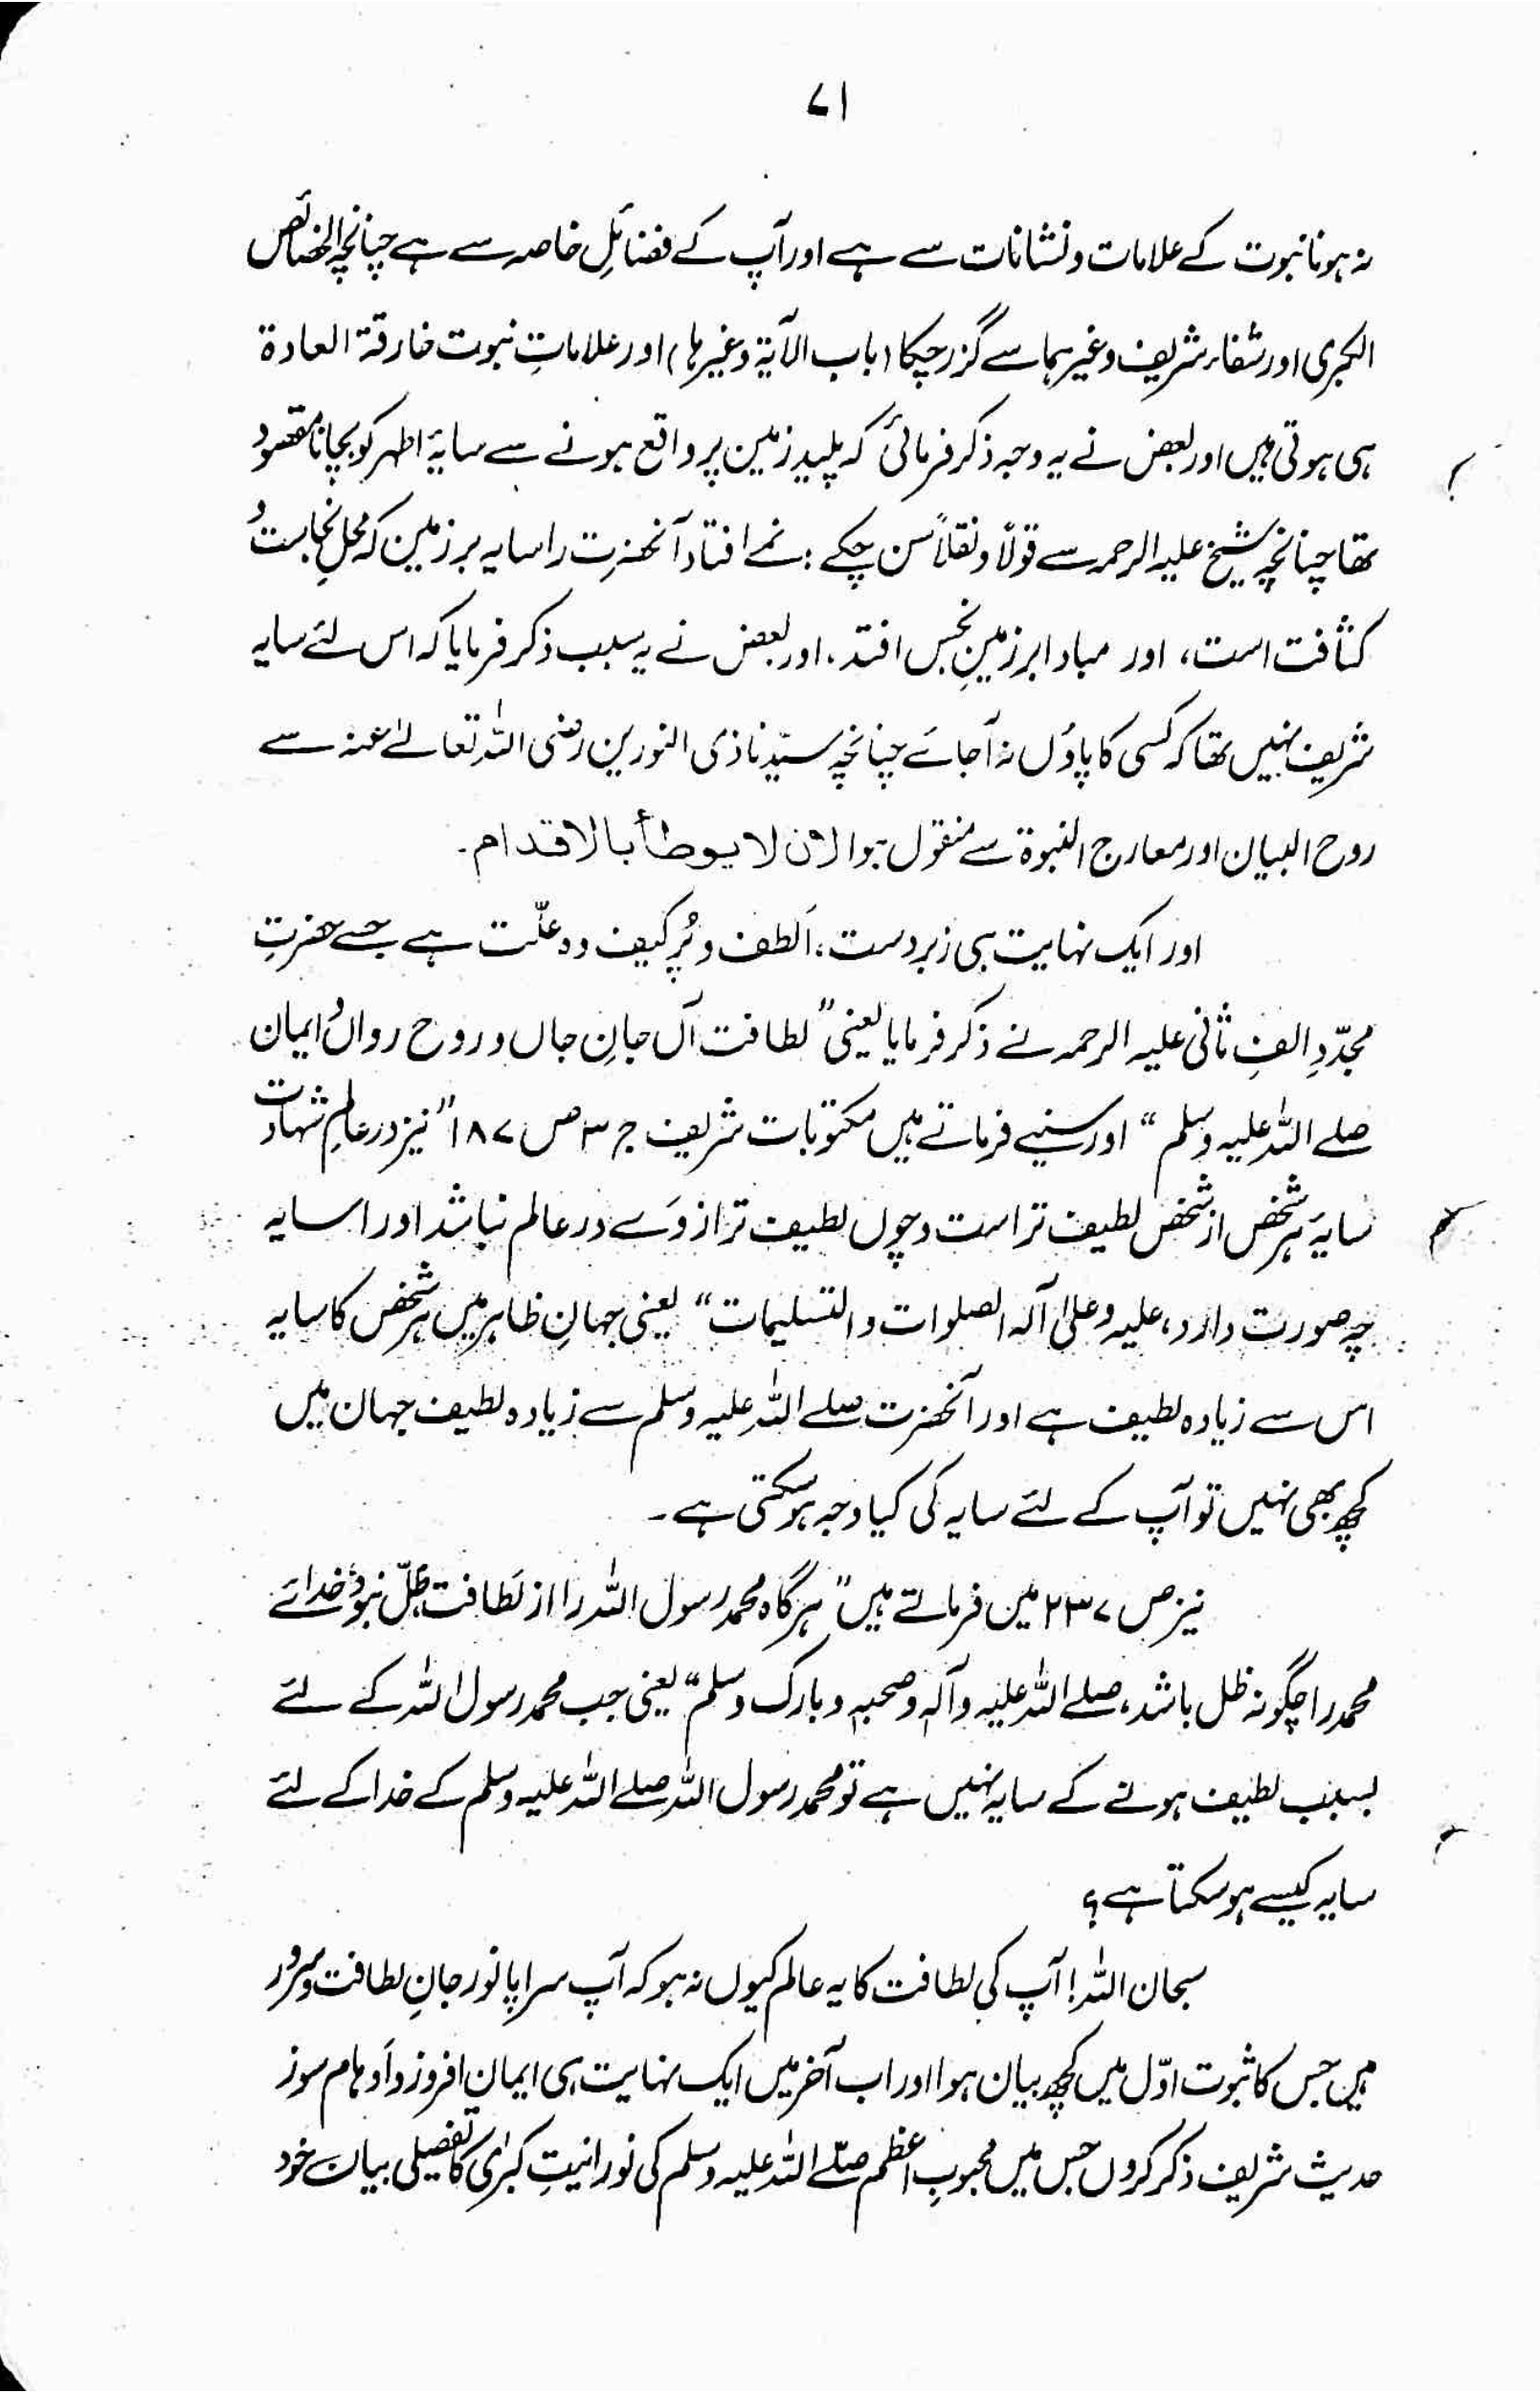 ۷۱
نہ ہونا نبوت کے علامات و نشانات سے ہے اور آپ کے فضائلِ خاصہ سے ہے چنانچہ الخصائص
الکبریٰ اور شفاء شریف وغیرہما سے گزر چکا (باب الآیۃ وغیرہا) اور علاماتِ نبوت خارقۃ العادۃ
ہی ہوتی ہیں اور بعض نے یہ وجہ ذکر فرمائی کہ پلید زمین پر واقع ہونے سے سایۂ اطہر کو بچانا مقصود
تھا چنانچہ شیخ علیہ الرحمہ سے قولاً و نقلاً سن چکے : نمے افتاد آنحضرت را سایہ بر زمین کہ محلِ نجاست و
کثافت است، اور مبادا بر زمینِ نجس افتد. اور بعض نے یہ سبب ذکر فرمایا کہ اس لئے سایہ
شریف نہیں تھا کہ کسی کا پاؤں نہ آجائے چنانچہ سیّدنا ذی النورین رضی اللہ تعالےٰ عنہ سے
روح البیان اور معارج النبوۃ سے منقول ہوا لان لا یوطأ بالاقدام۔
اور ایک نہایت ہی زبردست، اَلطف و پُر کیف وہ علّت ہے جسے حضرتِ
مجدّدِ الفِ ثانی علیہ الرحمہ نے ذکر فرمایا یعنی ”لطافت آں جانِ جاں و روح روانُ ایمان
صلے اللہ علیہ وسلم“ اور سنیے فرماتے ہیں مکتوبات شریف ج ۳ ص ۱۸۷ ”نیز در عالمِ شہادت
سایۂ ہر شخص از شخص لطیف تر است و چوں لطیف تر از وَے در عالم نباشد او را سایہ
چہ صورت دارد، علیہ وعلیٰ آلہ الصلوات والتسلیمات“ یعنی جہانِ ظاہر میں ہر شخص کا سایہ
اس سے زیادہ لطیف ہے اور آنحضرت صلے اللہ علیہ وسلم سے زیادہ لطیف جہان میں
کچھ بھی نہیں تو آپ کے لئے سایہ کی کیا وجہ ہو سکتی ہے۔
نیز ص ۲۳۷ میں فرماتے ہیں ”ہرگاہ محمد رسول اللہ را از لَطافت ظِلّ نبود خدائے
محمد را چگونہ ظل باشد، صلے اللہ علیہ وآلہٖ وصحبہٖ وبارک وسلم“ یعنی جب محمد رسول اللہ کے لئے
بسبب لطیف ہونے کے سایہ نہیں ہے تو محمد رسول اللہ صلے اللہ علیہ وسلم کے خدا کے لئے
سایہ کیسے ہو سکتا ہے؟
سبحان اللہ! آپ کی لطافت کا یہ عالم کیوں نہ ہو کہ آپ سراپا نور جانِ لطافت و سرور
ہیں جس کا ثبوت اوّل میں کچھ بیان ہوا اور اب آخر میں ایک نہایت ہی ایمان افروز و اَوہام سوز
حدیث شریف ذکر کروں جس میں محبوبِ اعظم صلّے اللہ علیہ وسلم کی نورانیتِ کبرٰی کا تفصیلی بیان خود